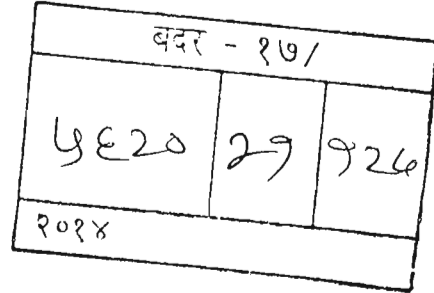 बदर - १७/
५६२० २१ १२७
२०१४